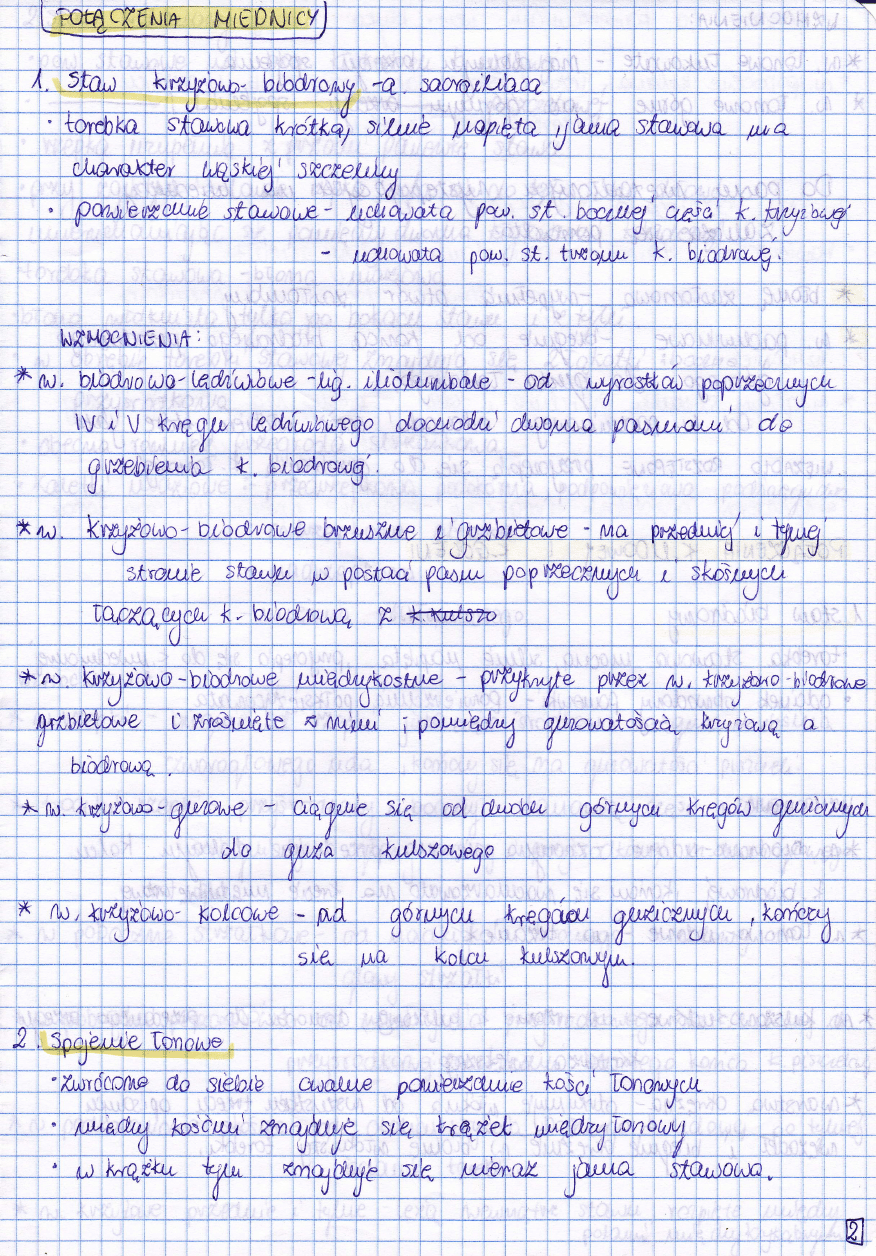 POŁĄCZENIA MIEDNICY
1. Staw krzyżowo-biodrowy -a. sacroiliaca
· torebka stawowa krótka, silnie napięta, jama stawowa ma
charakter wąskiej szczeliny
· powierzchnie stawowe - uchowata pow. st. bocznej części k. krzyżowej
- uchowata pow. st. trzonu k. biodrowej.
WZMOCNIENIA:
* w. biodrowo-lędźwiowe -lig. iliolumbale - od wyrostków poprzecznych
IV i V kręgu lędźwiowego dochodzi dwoma pasmami do
grzebienia k. biodrowej.
* w. krzyżowo-biodrowe brzuszne i grzbietowe - na przedniej i tylnej
stronie stawu w postaci pasm poprzecznych i skośnych
łączących k. biodrową z k. kulszo
* w. krzyżowo-biodrowe międzykostne - przykryte przez w. krzyżowo-biodrowe
grzbietowe i zrośnięte z nimi i pomiędzy guzowatością krzyżową a
biodrową.
* w. krzyżowo-guzowe - ciągnie się od dwóch górnych kręgów guzicznych
do guza kulszowego
* w. krzyżowo-kolcowe - od górnych kręgów guzicznych, kończy
się na kolcu kulszowym.
2. Spojenie łonowe
· zwrócone do siebie owalne powierzchnie kości łonowych
· między kośćmi znajduje się krążek międzyłonowy
· w krążku tym znajduje się nieraz jama stawowa.
2